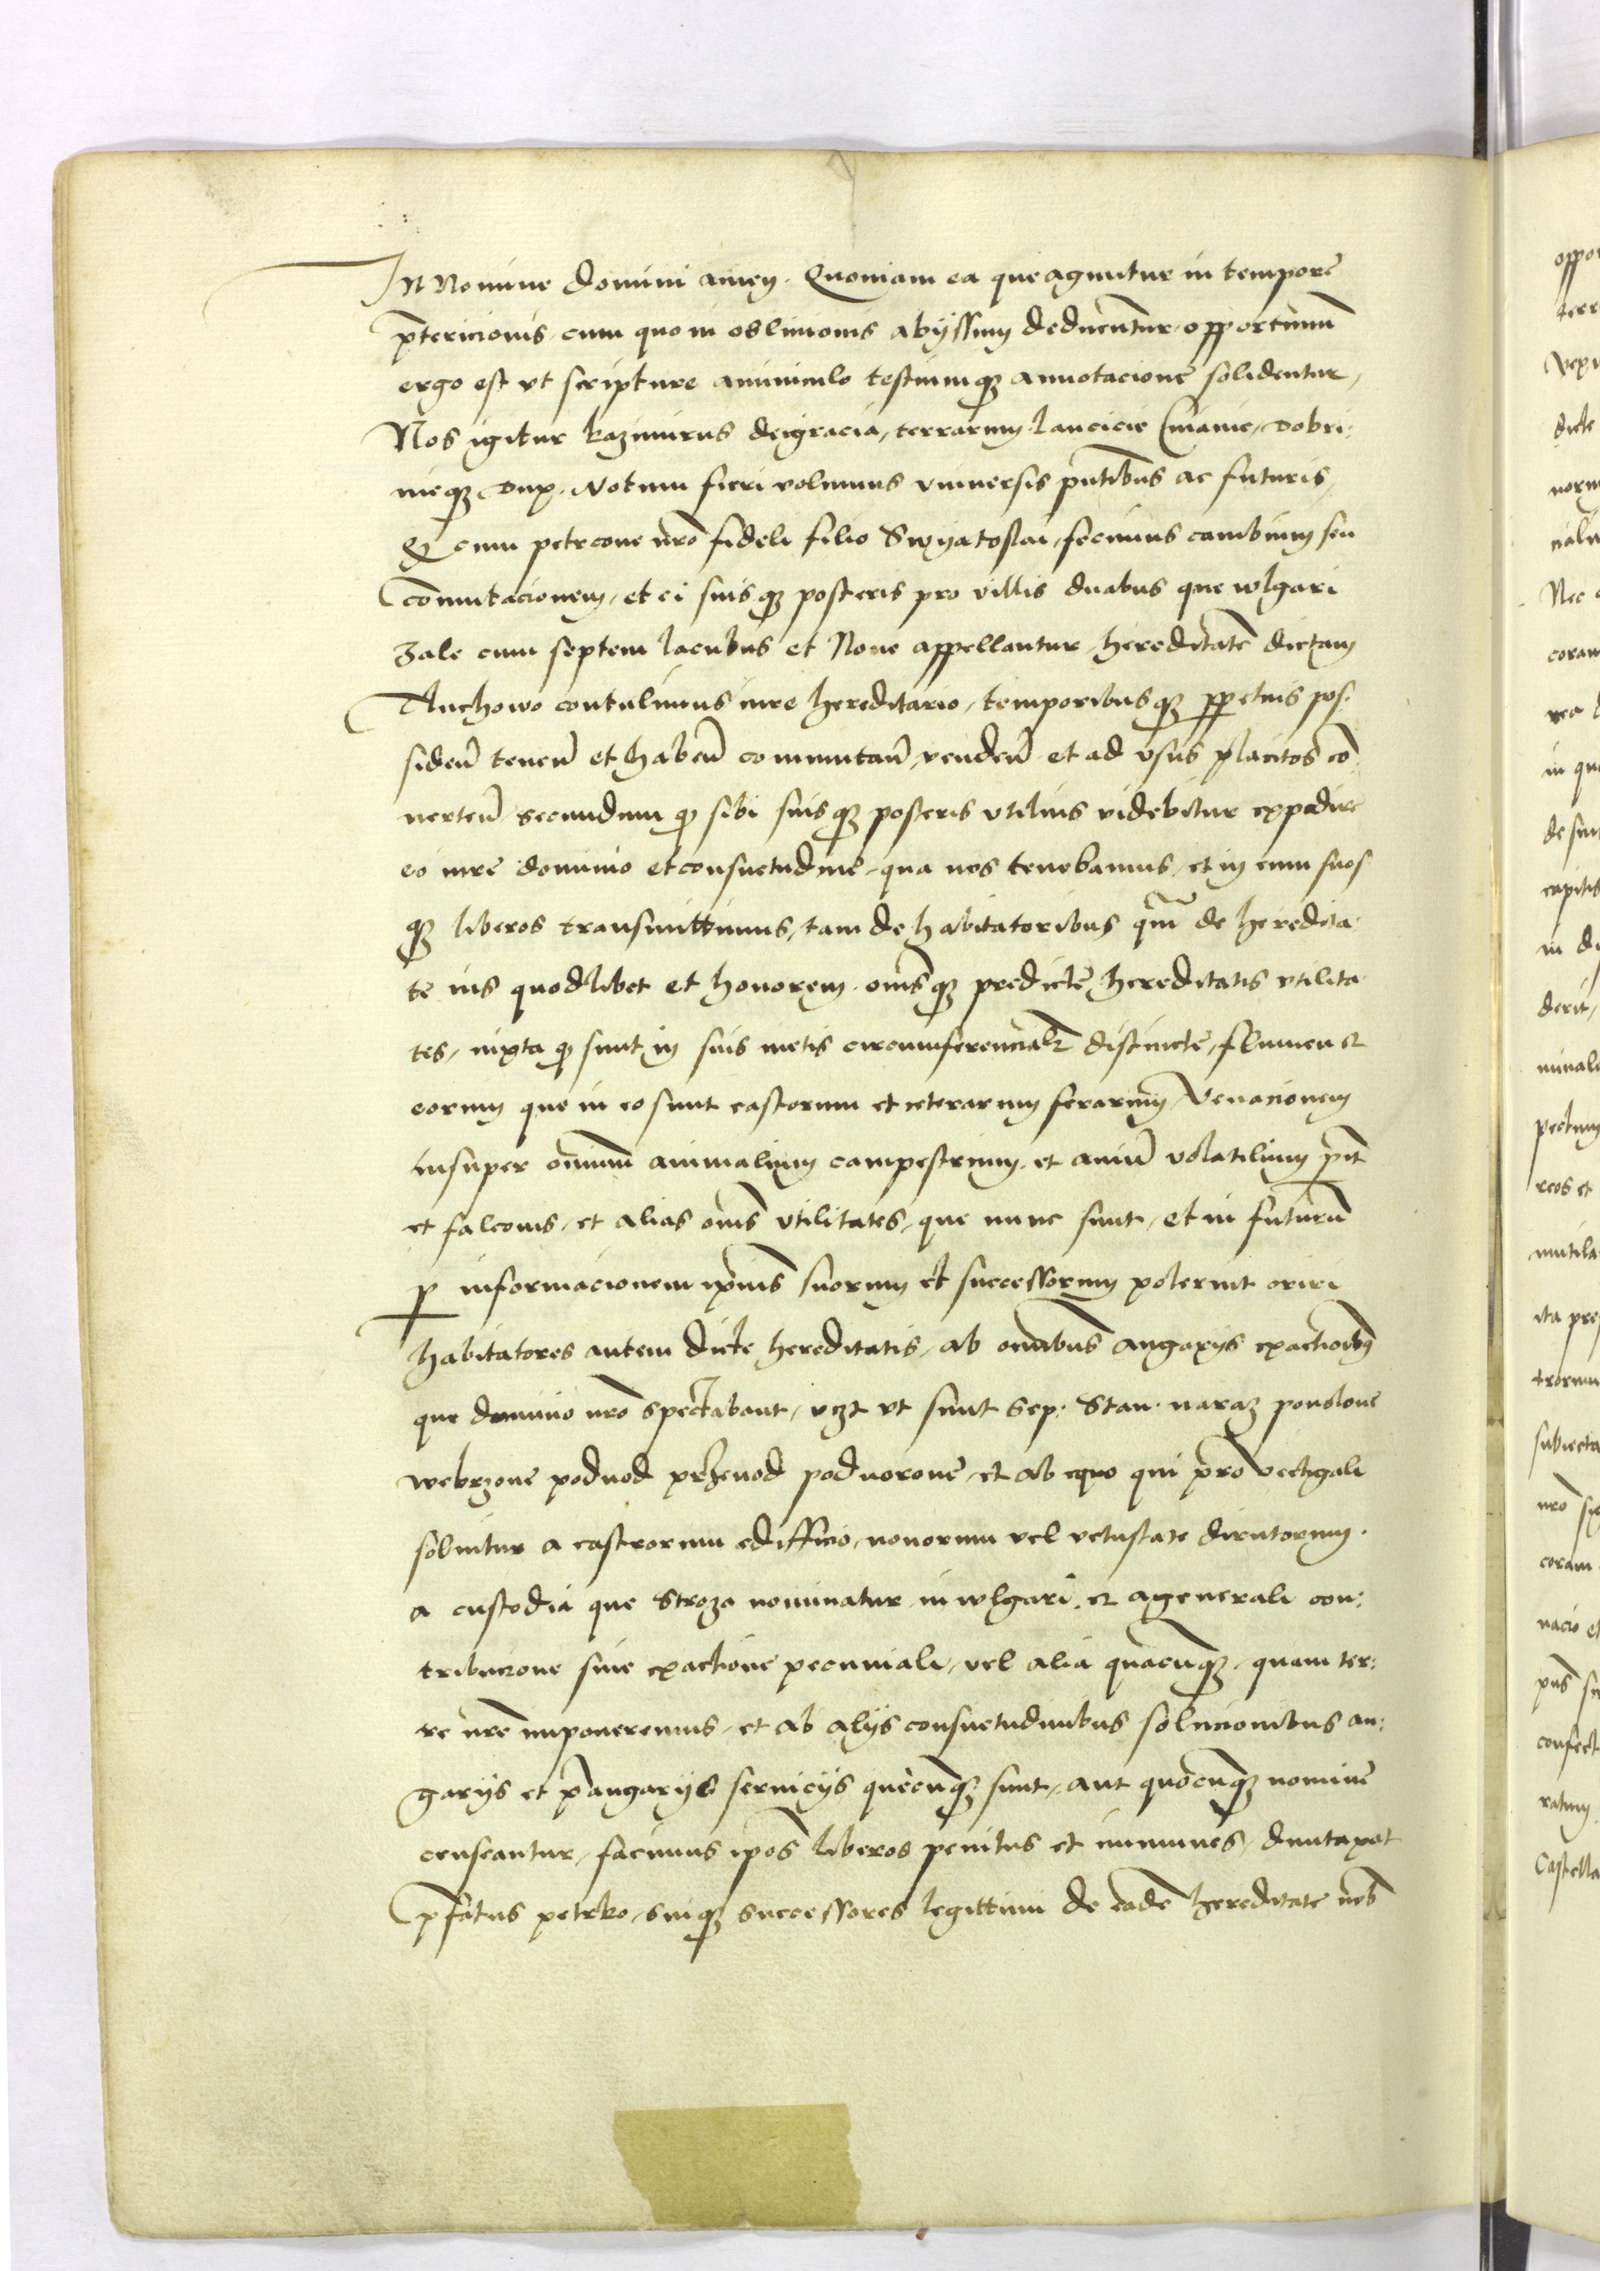 In Nomine domini amen. Quoniam ea que aguntur in tempore
p̄tericionis cum quo in oblivionis abyssum deducentur opportunū
ergo est vt scripture aminiculo testiumqꝫ annotacione solidentur,
Nos igitur kazimirus deigracia, terrarum Lancicie Cuiauie, dobri:
nieqꝫ dux. Notum fieri volumus vniuersis pn̄tibus ac futuris,
Qꝫ cum petrcone nr̄o fideli filio Swyatoslai, fecimus cambium seu
cōmutacionem, et ei suisqꝫ posteris pro villis duabus que wlgari
Zale cum septem lacubus et Noue appellantur, hereditatē dictam
Auchowo contulimus iure hereditario, temporibusqꝫ ꝑpetuis pos:
sideñ teneñ et habeñ commutañ, vendeñ et ad vsus placitos cō
uerteñ secundum qꝫ sibi suisqꝫ posteris vtilius videbitur expedire
eo iure dominio et consuetudine, qua nos tenebamus, et in eum suos
qꝫ liberos transmittimus, tam de habitatoribus qm̄ de heredita
te ius quodlibet et honorem. oms̄qꝫ predicte hereditatis vtilita
tes, iuxta qꝫ sunt in suis metis circumferencialr̄ distincte, flumen et
eorum que in eo sunt castorum et ceterarum ferarum Venacionem
insuper omnium animalium campestrium. et auiū volatilium p̄t
et falconis, et alias oms̄ vtilitates, que nunc sunt, et in futurū
ꝑ informacionem ip̄ius suorum et successorum poterint oriri
habitatores autem dicte hereditatis, ab omibus angarijs exactioibꝫ
que dominio nr̄o spectabant, vꝫt vt sunt Sep: Stan. naraz powolowe
webrzone podwod przewod podworowe, et ab equo qui pro vectigali
soluitur a castrorum ediffcio, nouorum vel vetustate dirutorum.
a custodia que Stroza nominatur in wlgari. et a generali con:
tribucione siue exactione pecuniali, vel alia quacūqꝫ, quam ter:
re nr̄e imponeremus, et ab alijs consuetudinibus solucionibus an:
garijs et p̄angarijs seruicijs quecūqꝫ sunt, aut quocūqꝫ nomine
censeantur, facimus ip̄os liberos penitus et immunes, duntaxat
p̄fatus petrko, suiqꝫ successores legittimi de eadē hereditate nob̄